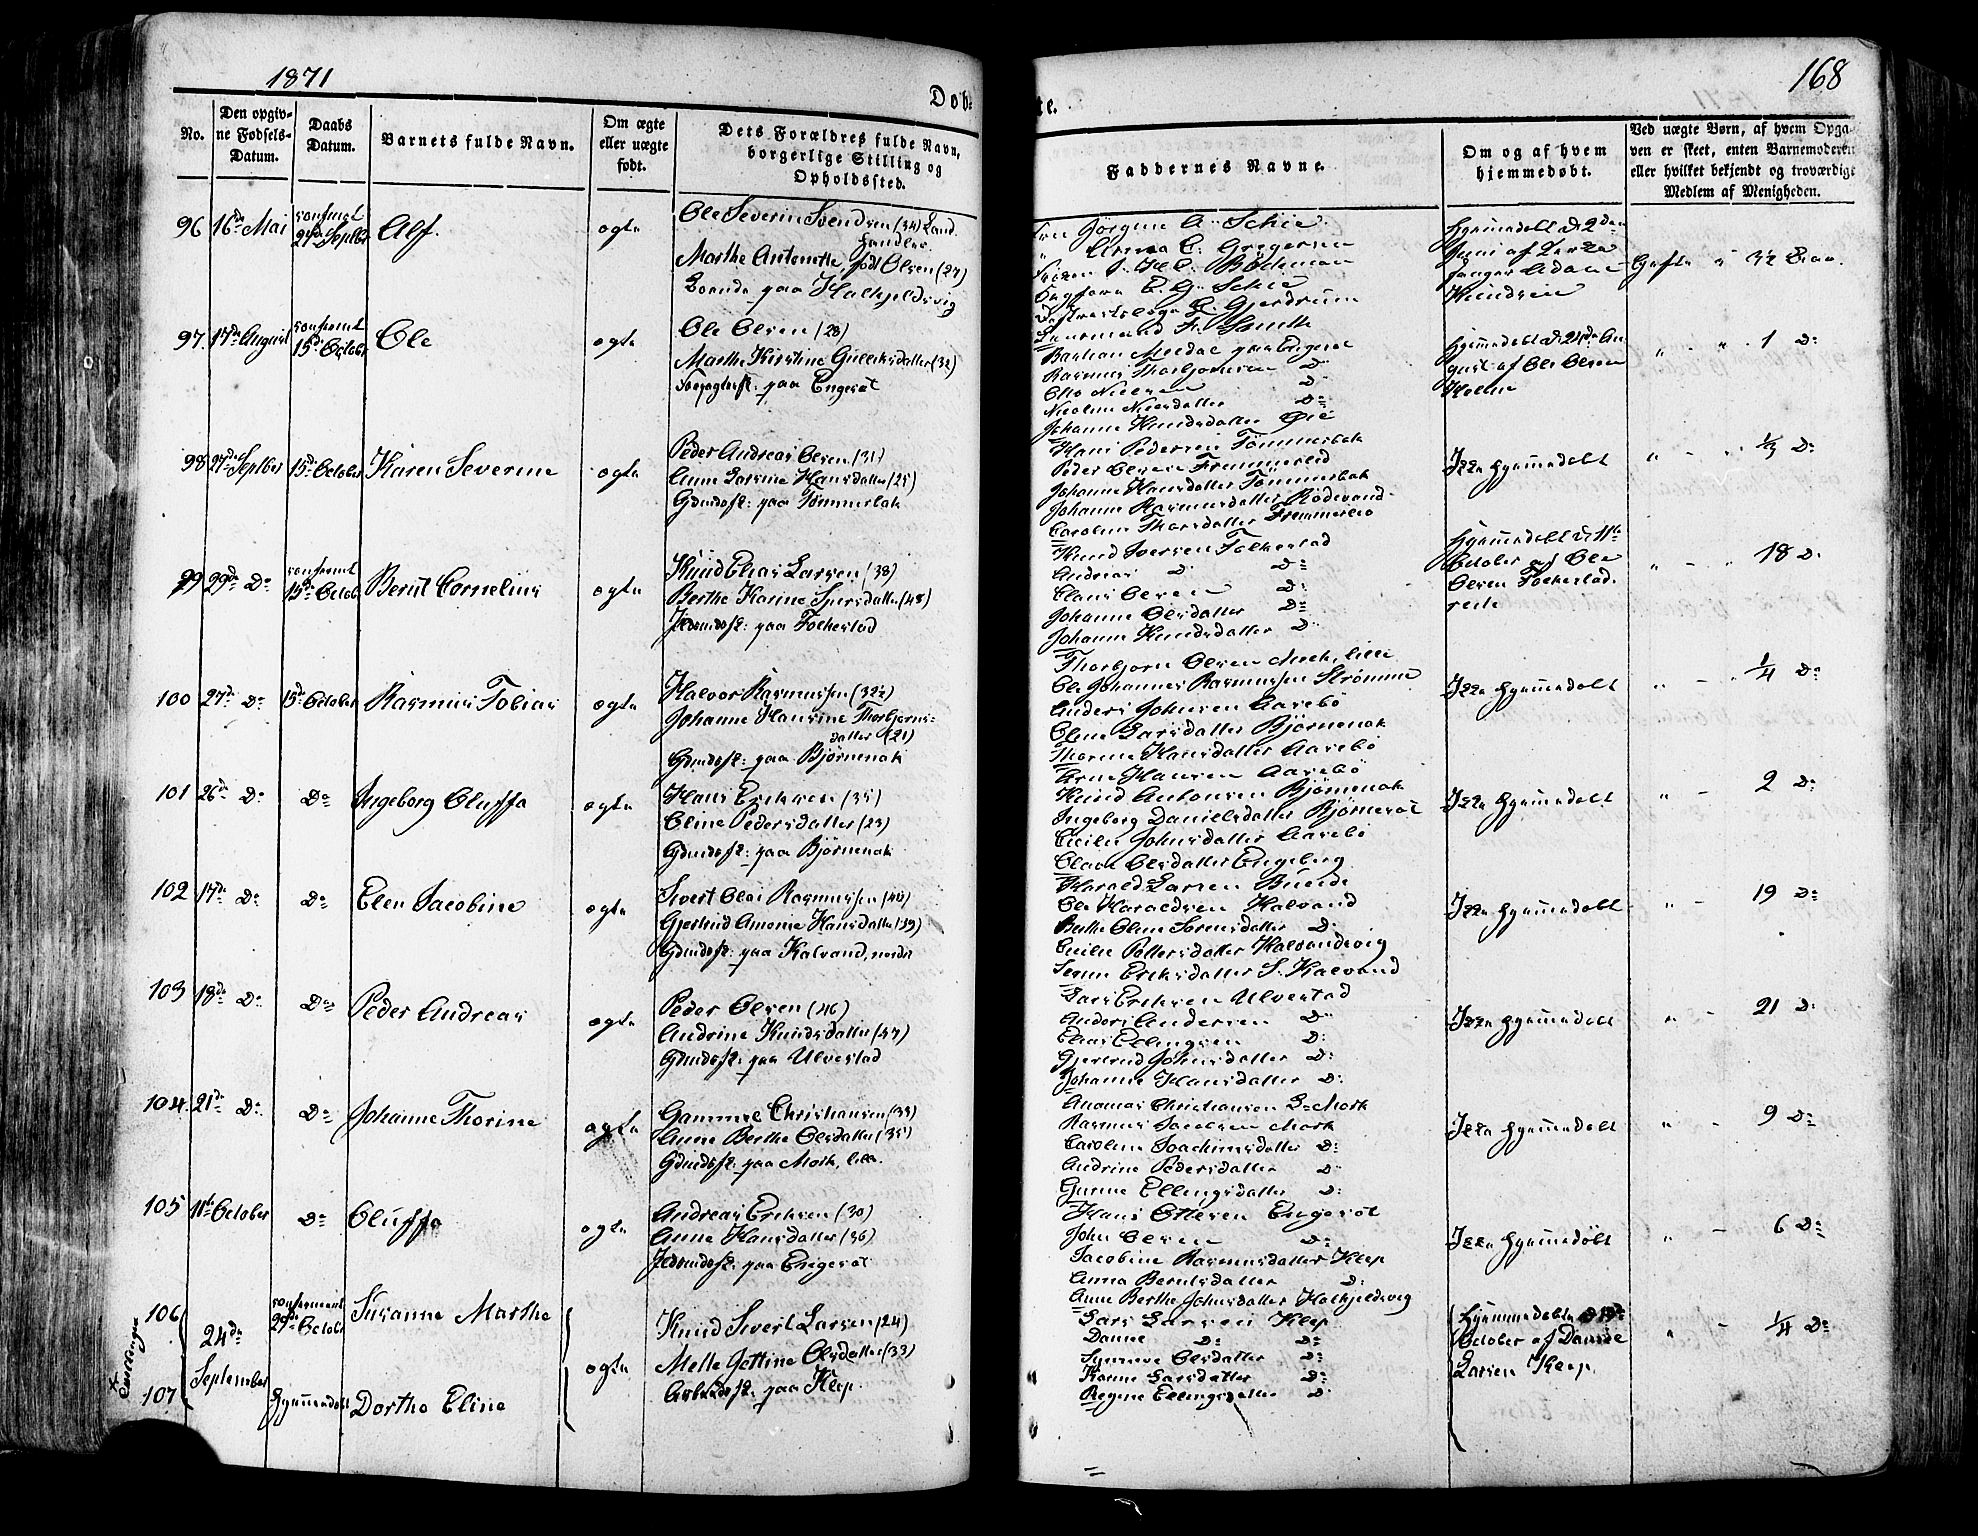 1871
168
Døb-
te.
No.
Den opgiv-
ne Fødsels-
Datum.
Daabs
Datum.
Barnets fulde Navn.
Om ægte
eller uægte
født.
Dets Forældres fulde Navn,
borgerlige Stilling og
Opholdssted.
Faddernes Navne.
Om og af hvem
hjemmedøbt.
Ved uægte Børn, af hvem Opga-
ven er skeet, enten Barnemoderen
eller hvilket bekjendt og troværdigt
Medlem af Menigheden.
96 16de Mai
Alf.
ægte
Ole Severin Svendsen (34) Land
handler
Marthe Antonette, født Olsen (27)
Boende paa Halkjeldsvig
Jørgine Schie
Gregersen
Schie
Gjerdrum
Hjemmedøbt d. 2den
Juni af
Knudsen
97. 17de August
15de October
Ole
ægte
Ole Olsen (28)
Marthe Kirstine Gulleksdatter (32)
paa Engesæt
paa Engesæt
Rasmus Thorbjørnsen Do
Otto Nielsen Do
Nicoline Nielsdatter Do
Johanne Knudsdatter Øie
Hjemmedøbt d. 24de Au
gust af Ole Olsen
" - " 1 Do
98 27de Septber 15de October Karen Severine
ægte
Peder Andreas Olsen (31)
Anne Larsine Hansdatter (25)
Gdmdsf: paa Tømmerbak
Hans Pedersen Tømmerbak
Peder Olsen Fremmerlid
Johanne Hansdatter Tømmerbak
Johanne Rasmusdatter Rødevand
Caroline Thorsdatter Fremmerlid
Ikke hjemmedøbt
" - " ½ Do
99 29de Do
15de Octob
Bernt Cornelius
ægte
Knud Elias Larsen (38)
Berthe Karine Iversdatter (48)
Jldsmdsf: paa Folkestad
Knud Iversen Folkestad
Andreas Do Do
Claus Olsen Do
Johanne Olsdatter Do
Johanne Knudsdatter Do
Hjemmedøbt d. 11te
October af Ole
Olsen Folkestad
" - " 18 Do
100 27de Do 15de October Rasmus Tobias
ægte
Halvor Rasmussen (32½)
Johanne Hansine Thorbjørns-
datter (21)
Gdmdsf: paa Bjørnenak
Thorbjørn Olsen Mork, lille
Ole Johannes Rasmussen Strømme
Anders Johnsen Aasebø
Oline Larsdatter Bjørnenak
Thorine Hansdatter Aasebø
Ikke hjemmedøbt
" - " ¼ Do
101 26de Do Do Ingeborg Oluffa
ægte
Hans Eriksen (35)
Oline Pedersdatter (23)
Gdmdsf: paa Bjørnenak
Arne Hansen Aasebø
Knud Antonsen Bjørnenak
Ingeborg Danielsdatter Bjørnesæt
Cecilie Johnsdatter Aasebø
Olava Olsdatter Engeberg
Ikke hjemmedøbt
" - 2 Do
102 17de Do Do Elen Jacobine
ægte
Sivert Olai Rasmussen (40)
Gjertrud Amonie Hansdatter (39)
Gdmdsf: paa Kalvand, nordre
Harald Larsen
Ole Haraldsen Kalvand
Berthe Oline Sørensdatter Do
Cecilie Pettersdatter Kalvandsvig
Eriksdatter S. Kalvand
Ikke hjemmedøbt
" - 19 Do
103 18de Do Do Peder Andreas
ægte
Peder Olsen (46)
Andrine Knudsdatter (47)
Gdmdsf: paa Ulvestad
Lars Eriksen Ulvestad
Anders Andersen Do
Elias Ellingsen Do
Gjertrud Johnsdatter Do
Johanne Hansdatter Do
Ikke hjemmedøbt
" - 21 Do
104. 21de Do Do Johanne Thorine
ægte
Gammel Christiansen (35)
Anne Berthe Olsdatter (35)
Gdmdsf: paa Mork, lille.
Ananias Christiansen Mork
Rasmus Jacobsen Mork
Caroline Joachimsdatter Do
Andrine Pedersdatter Do
Gurine Ellingsdatter Do
Ikke hjemmedøbt
" - 9 Do
105 11te October Do Oluffa
ægte
Andreas Eriksen (30)
Anne Hansdatter (36)
Jldsmdsf: paa Engesæt
Hans Ottesen Engesæt
John Olsen Do
Jacobine Rasmusdatter Klep
Anna Berntsdatter Do
Anne Berthe Johnsdatter Halkjeldsvig
Ikke hjemmedøbt
" - 6 Do
106
24de
September
29de October
Susanne Marthe
Tvillinger
107
hjemmedøbt Dorthe Eline
ægte
Knud Sivert Larsen (24)
Melle Gettine Olsdatter (33)
paa Klep.
Lars Larsen Klep
Danne Do Do
Synneve Olsdatter Do
Karine Larsdatter Do
Regine Ellingsdatter Do
Hjemmedøbte d.
October af
Larsen Klep.
" - ¼ Do